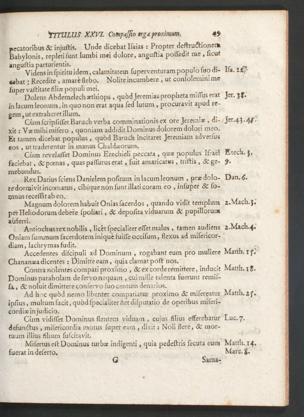 TITULUS XXVI. Compassio erga proximum. 49
peccatoribus & injustis. Unde dicebat Isaias: Propter destructionem
Babylonis, repleti sunt lumbi mei dolore, angustia possedit me, sicut
angustia parturientis.
Videns in spiritu idem, calamitatem superventuram populo suo dicebat; Isa. 16.
cebat; Recedite, amarè flebo. Nolite incumbere, ut consolemini me
super vastitate filiæ populi mei.
Dolens Abdemelech æthiops, quod Jeremias propheta missus erat Jer. 38.
in lacum lconum, in quo non erat aqua sed lutum, procuravit apud regem,
gem, ut extraheret illum.
Cùm scripsisset Baruch verba comminationis ex ore Jeremiæ, dixit: Jer. 43. 45.
xit: Væ mihi misero, quoniam addidit Dominus dolorem dolori meo.
Et tamen dicebat populus, quòd Baruch incitaret Jeremiam adversus
eos, ut traderentur in manus Chaldæorum.
Cùm revelasset Dominus Ezechieli peccata, quæ populus Israël Ezech. 3.
faciebat, & pœnas, quas passurus erat, fuit amaricatus, tristis, & gemebundus. 9.
mebundus.
Rex Darius sciens Danielem positum in lacum leonum, præ dolore Dan. 6.
re dormivit incœnatus, cibique non sunt illati coram eo, insuper & somnus
nus recessit ab eo.
Magnum dolorem habuit Onias sacerdos, quando vidit templum 2. Mach. 3.
per Heliodorum debere spoliari, & deposita viduarum & pupillorum
auferri.
Antiochus rex nobilis, licèt specialiter esset malus, tamen audiens 2. Mach. 4.
Oniam summum sacerdotem iniquè fuisse occisum, flexus ad misericordiam,
diam, lachrymas fudit.
Accedentes discipuli ad Dominum, rogabant eum pro muliere Matth. 15.
Chananæa dicentes: Dimitte eam, quia clamat post nos.
Contra nolentes compati proximo, & ex corde remittere, inducit Matth. 18.
Dominus parabolam de servo nequam, cui mille talenta fuerunt remissa,
sa, & noluit dimittere conservo suo centum denarios.
Ad hæc quòd nemo libenter compatiatur proximo & misereatur Matth. 25.
ipsius, multum facit, quòd specialiter fiet disputatio de operibus misericordiæ
cordiæ in judicio.
Cùm vidisset Dominus flentem viduam, cujus filius efferebatur Luc. 7.
defunctus, misericordia motus super eam, dixit: Noli flere, & mortuum
tuum illius filium suscitavit.
Misertus est Dominus turbæ indigenti, quia pedestris secuta eum Matth. 14.
fuerat in deserto. Marc. 8.
G Sama-